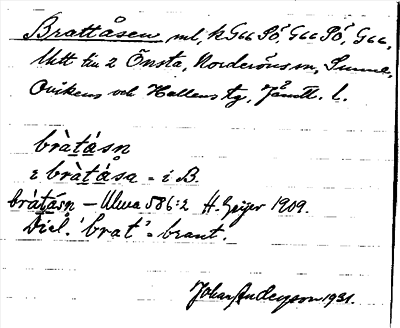 Brattåsen, ml, k G66 Pö, G66 Pö, G66,
Utt till 2 Önsta, Norderöns sn, Sunne,
Ovikens och Hallens tg, Jämtl. l.
bràtásn
i bràtása = i B
bràtásn – Ulma 586:2 H. Geijer 1909.
Dial. 'brat' = brant.
Johan Anderson 1931.